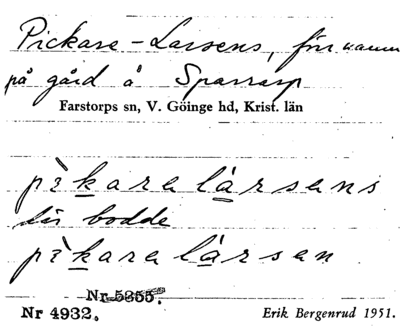 Pickare-Larsens, förr namn
på gård å Sparrarp
Farstorps sn, V. Göinge hd, Krist. län
pìkara lársens
där bodde
pìkara lársen
Nr 5355.
Nr 4932. Erik Bergenrud 1951.